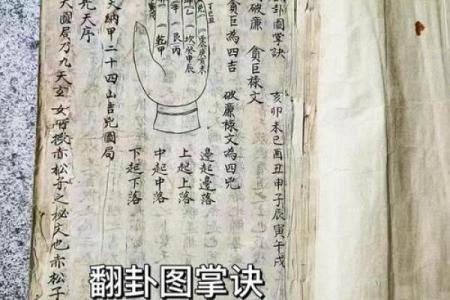 卦圖掌訣 亥卯未巳酉丑申子辰寅午戌
破廉 貪巨祿文
貪巨為四吉 破廉祿文為四凶
邊起邊落
上起上落
中起中落
下起下落
震庚亥未
坎癸申辰
艮丙
乾甲
文納甲二十四山吉凶圖局
先天序
天圓局乃九天玄女所授赤松子之秘文也赤松子
翻卦图掌诀